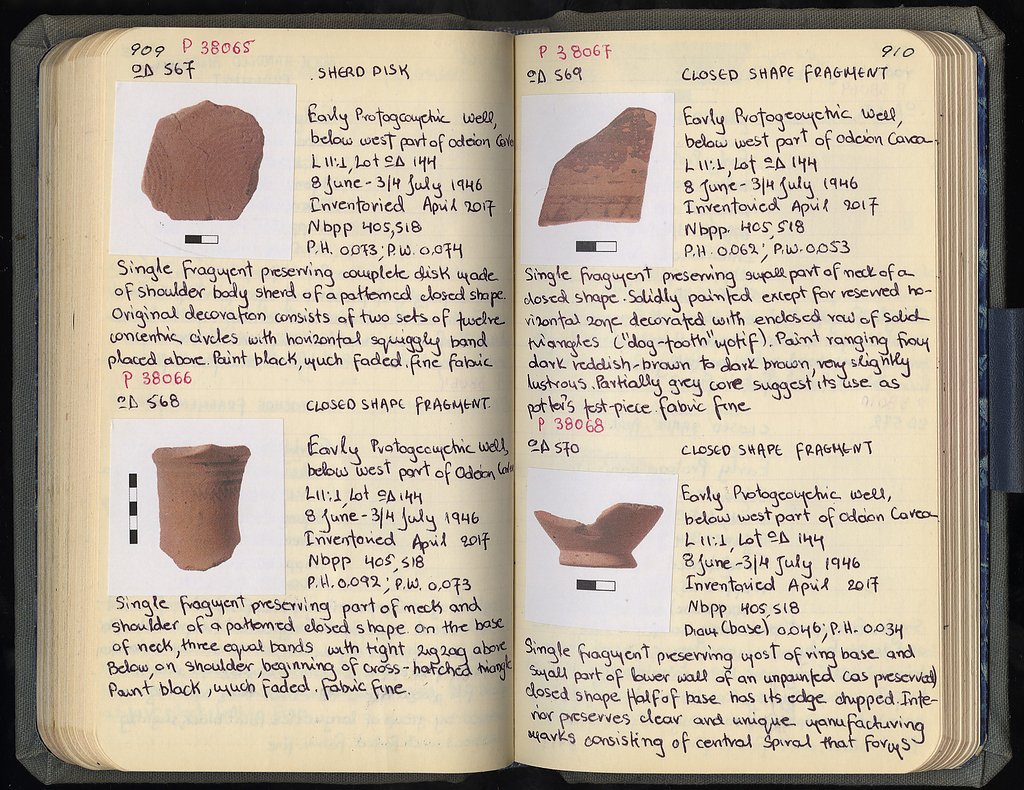 909 P 38065
ΟΔ 567 SHERD DISK
Early Protogeometric well,
below west part of odeion Cavea
L 11:1, Lot ΟΔ 144
8 June - 3/4 July 1946
Inventoried April 2017
Nbpp 405, 518
P.H. 0.073; P.W. 0.074
Single fragment preserving complete disk made
of shoulder body sherd of a patterned closed shape.
Original decoration consists of two sets of twelve
concentric circles with horizontal squiggly band
placed above. Paint black, much faded. Fine fabric
P 38066
ΟΔ 568 CLOSED SHAPE FRAGMENT.
Early Protogeometric well,
below west part of Odeion Cavea
L 11:1, Lot ΟΔ 144
8 June - 3/4 July 1946
Inventoried April 2017
Nbpp 405, 518
P.H. 0.092; P.W. 0.073
Single fragment preserving part of neck and
shoulder of a patterned closed shape. On the base
of neck, three equal bands with tight zigzag above
Below, on shoulder, beginning of cross-hatched triangle
Paint black, much faded. Fabric fine.
P 38067 910
ΟΔ 569 CLOSED SHAPE FRAGMENT
Early Protogeometric well,
below west part of odeion Cavea.
L 11:1, Lot ΟΔ 144
8 June - 3/4 July 1946
Inventoried April 2017
Nbpp. 405, 518
P.H. 0.062; P.W. 0.053
Single fragment preserving small part of neck of a
closed shape. Solidly painted except for reserved ho-
rizontal zone decorated with enclosed row of solid
triangles ("dog-tooth" motif). Paint ranging from
dark reddish-brown to dark brown, very slightly
lustrous. Partially grey core suggest its use as
potter's test-piece. Fabric fine
P 38068
ΟΔ 570 CLOSED SHAPE FRAGMENT
Early Protogeometric well,
below west part of Odeion Cavea
L 11:1, Lot ΟΔ 144
8 June - 3/4 July 1946
Inventoried April 2017
Nbpp 405, 518
Diam (base) 0.046; P.H. 0.034
Single fragment preserving most of ring base and
small part of lower wall of an unpainted (as preserved)
closed shape. Half of base has its edge chipped. Inte-
rior preserves clear and unique manufacturing
marks consisting of central spiral that forms